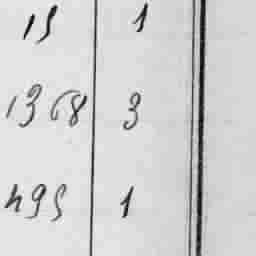 15 1
1368 3
495 1